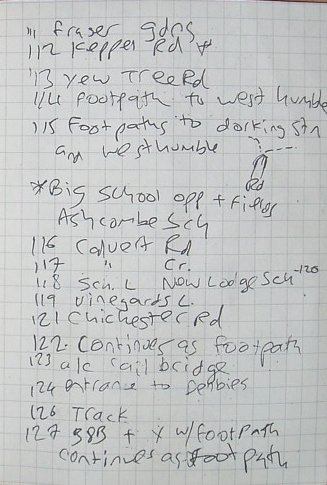 111 Fraser Gdns
112 Keppel Rd *
113 Yew Tree Rd
114 Footpath to West Humble
115 Footpaths to dorking Stn
and Westhumble
Rd
*Big School opp + Fields
Ashcombe Sch
116 Calvert Rd
117 " Cr.
118 Sch. L New Lodge Sch -120
119 Vinegards L.
121 Chichester Rd
122. Continues as footpath
123 a/c rail bridge
124 entrance to Denbies
126 Track
127 + X w/footpath
continues as foot path